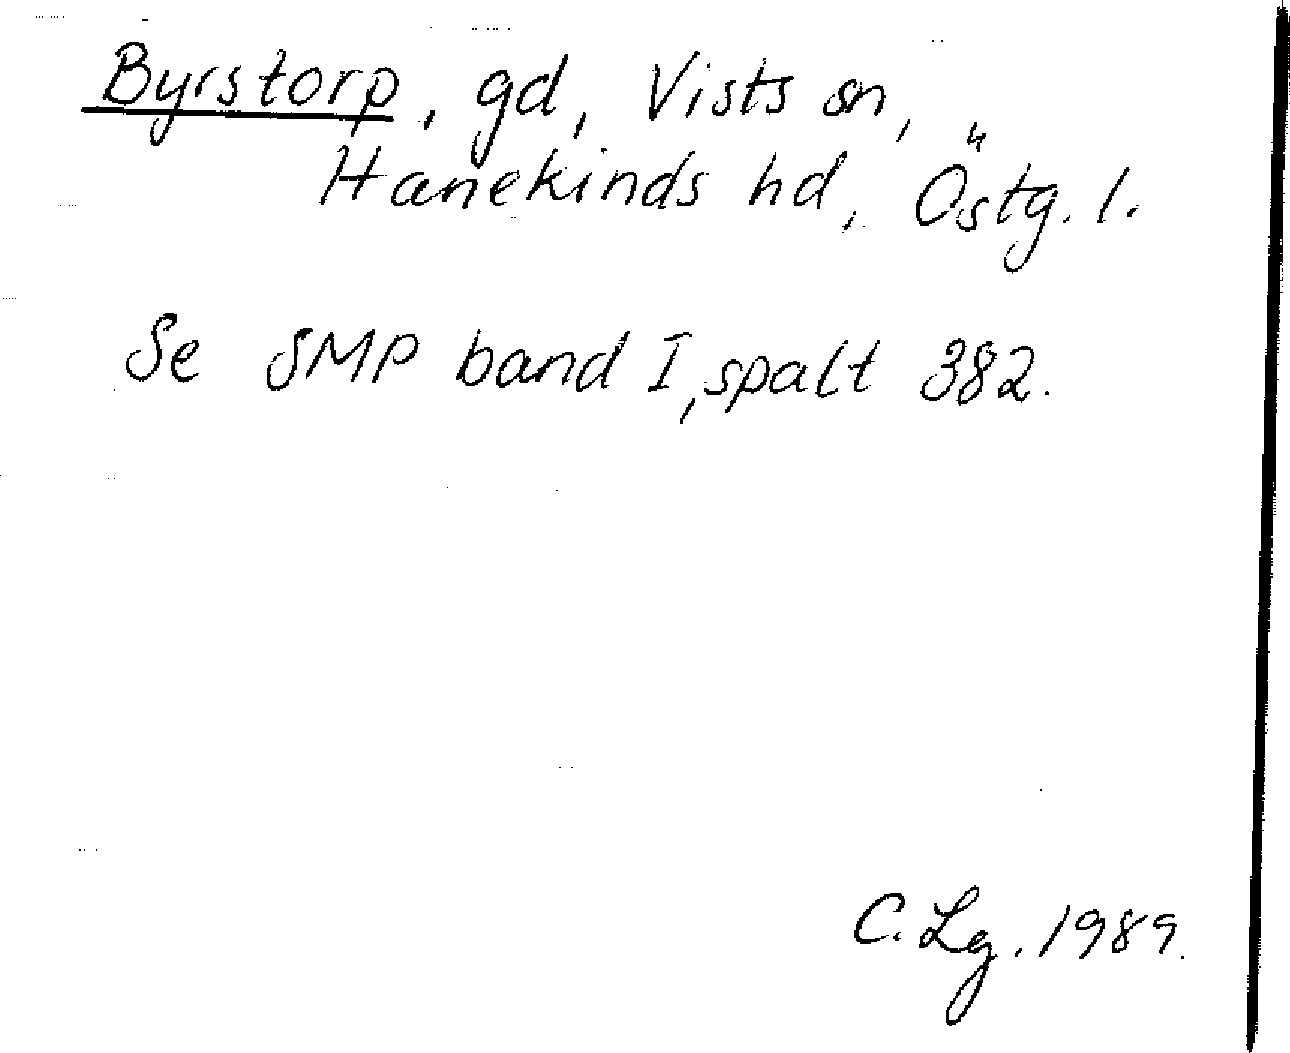 Byrstorp, gd, Vists sn,
Hanekinds hd, Östg. l.
Se SMP band I, spalt 382.
C. Lg. 1989.